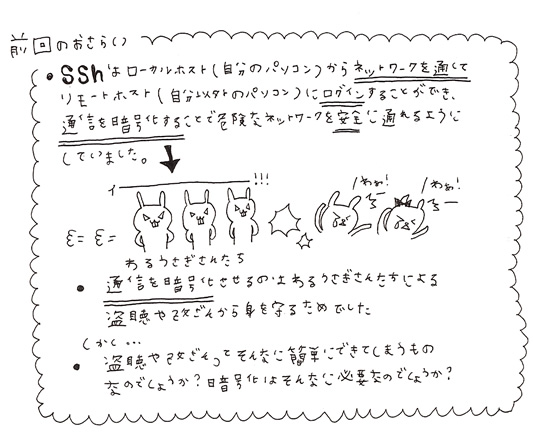 前回のおさらい
• SShはローカルホスト(自分のパソコン)からネットワークを通して
リモートホスト(自分以外のパソコン)にログインすることができ、
通信を暗号化することで危険なネットワークを安全に通れるように
していました。
イー!!!
わぁ!
わぁ!
わるうさぎさんたち
• 通信を暗号化させるのはわるうさぎさんたちによる
盗聴や改ざんから身を守るためでした
しかし…
• 盗聴や改ざんってそんなに簡単にできてしまうもの
なのでしょうか?暗号化はそんなに必要なのでしょうか?